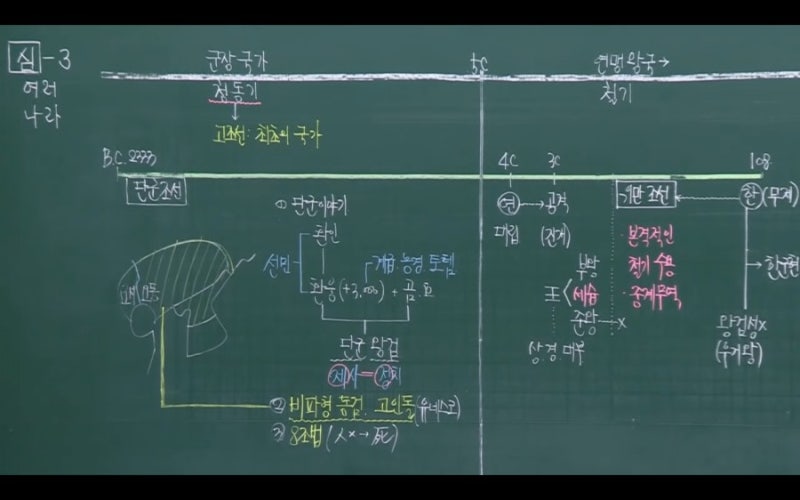 심-3
여러
나라
군장 국가
5C
연맹 왕국→
청동기
철기
고조선: 최초의 국가
B.C. 2333
4C
3C
108
단군조선
연 → 공격
위만 조선
한 (무제)
① 단군이야기
대립
(진개)
본격적인
환인
선민
계급 농경 토템
부왕
철기 수용
한군현
환웅(+3,000) + 곰, 호
王
세습
중계무역
요동
준왕 —x
왕검성x
단군 왕검
상 경 대부
(우거왕)
제사 = 정치
② 비파형 동검. 고인돌 (유네스코)
③ 8조법 (人x → 死)